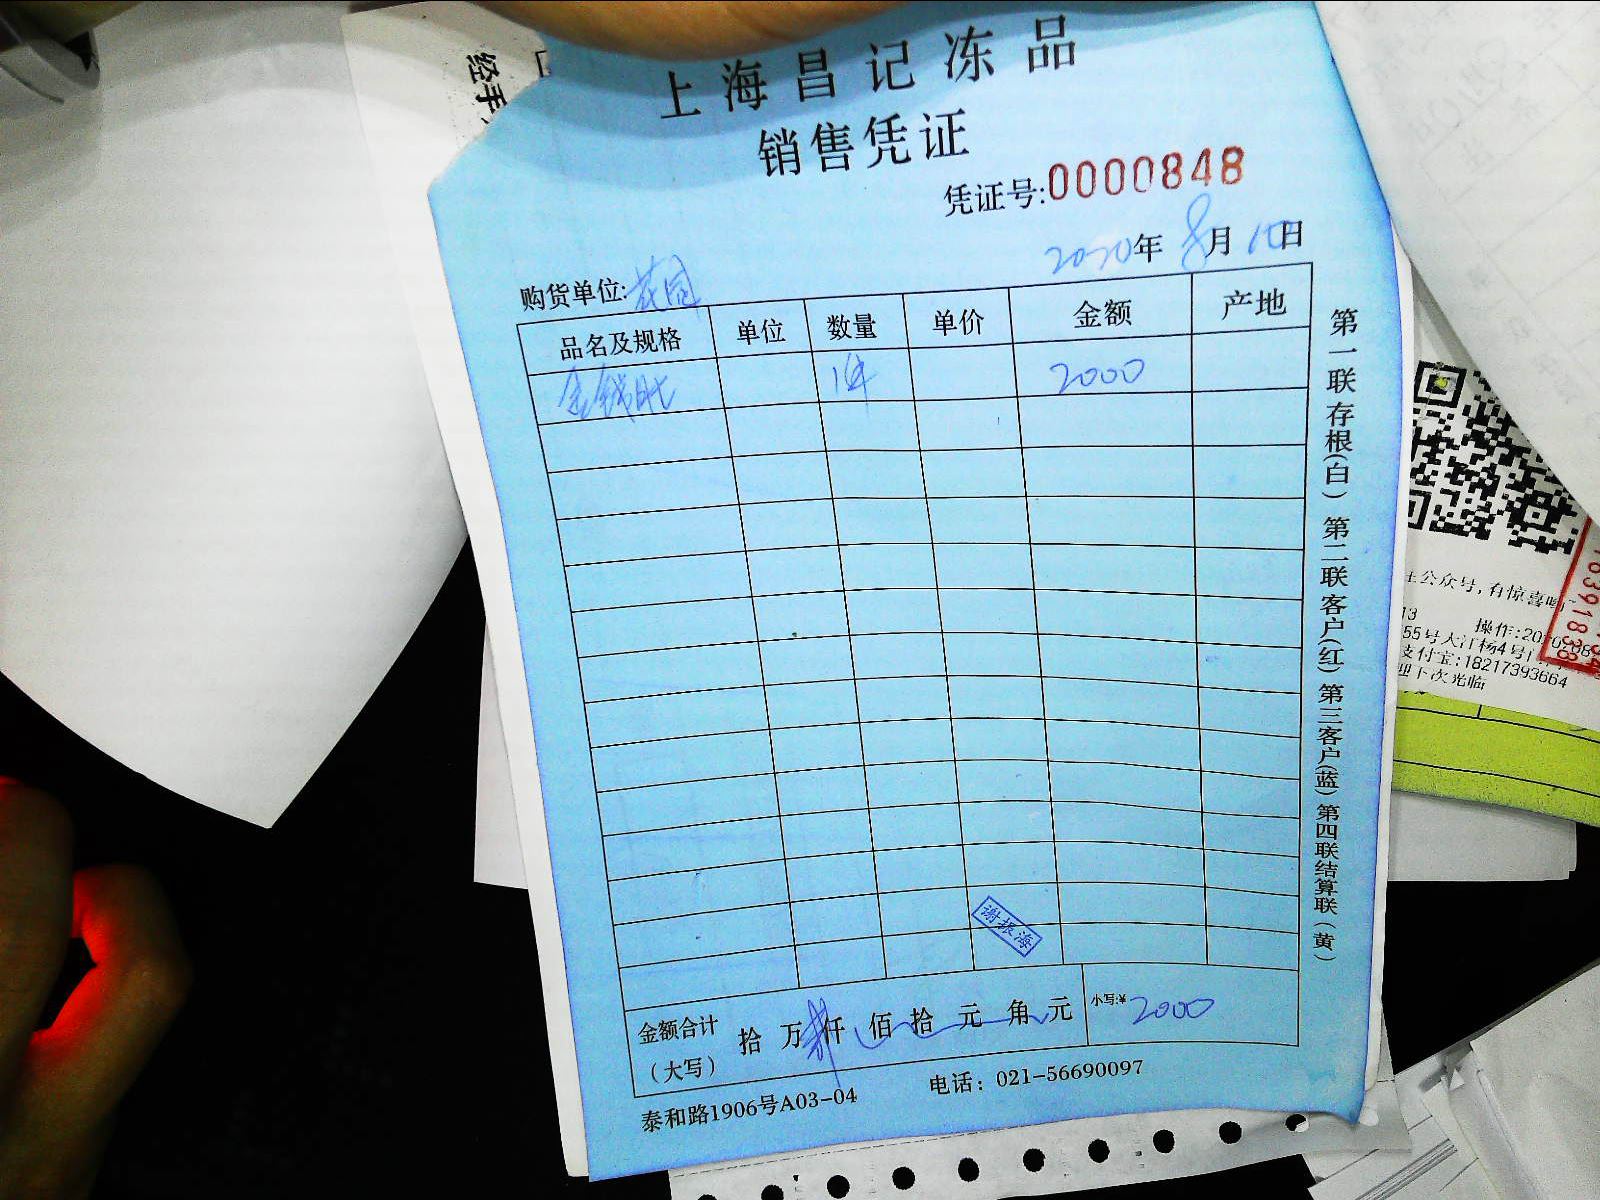 经手
上海昌记冻品
销售凭证
凭证号:0000848
2020年8月10日
购货单位:花园
品名及规格 单位 数量 单价 金额 产地
金钱肚 1件 2000
谢振海
金额合计（大写） 拾 万 仟 佰 拾 元 角 元 小写:¥2000
泰和路1906号A03-04 电话：021-56690097
第一联存根(白) 第二联客户(红) 第三客户(蓝) 第四联结算联(黄)
公众号,有惊喜哟
13 操作:20
55号大江杨4号
支付宝:18217393664
迎下次光临